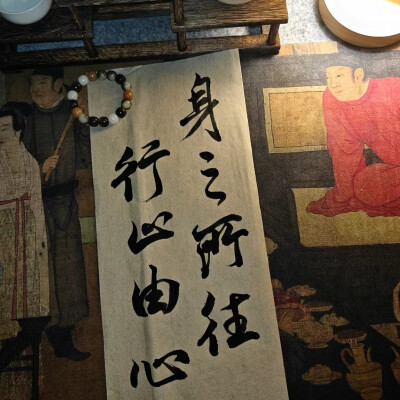 身之所往
行止由心